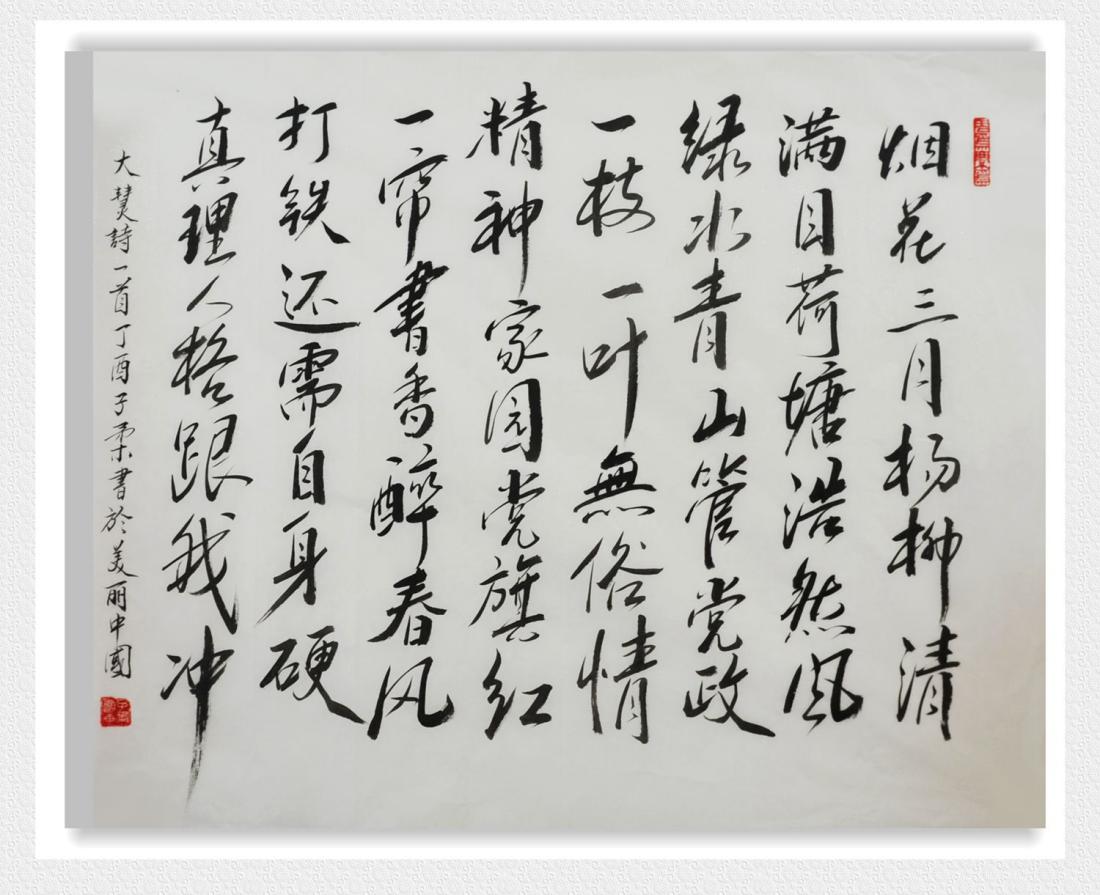 烟花三月杨柳清
满目荷塘浩然风
绿水青山管党政
一枝一叶無俗情
精神家园党旗红
一帘書香醉春风
打铁还需自身硬
真理人格跟我冲
大慧詩一首丁酉子柔書於美丽中國